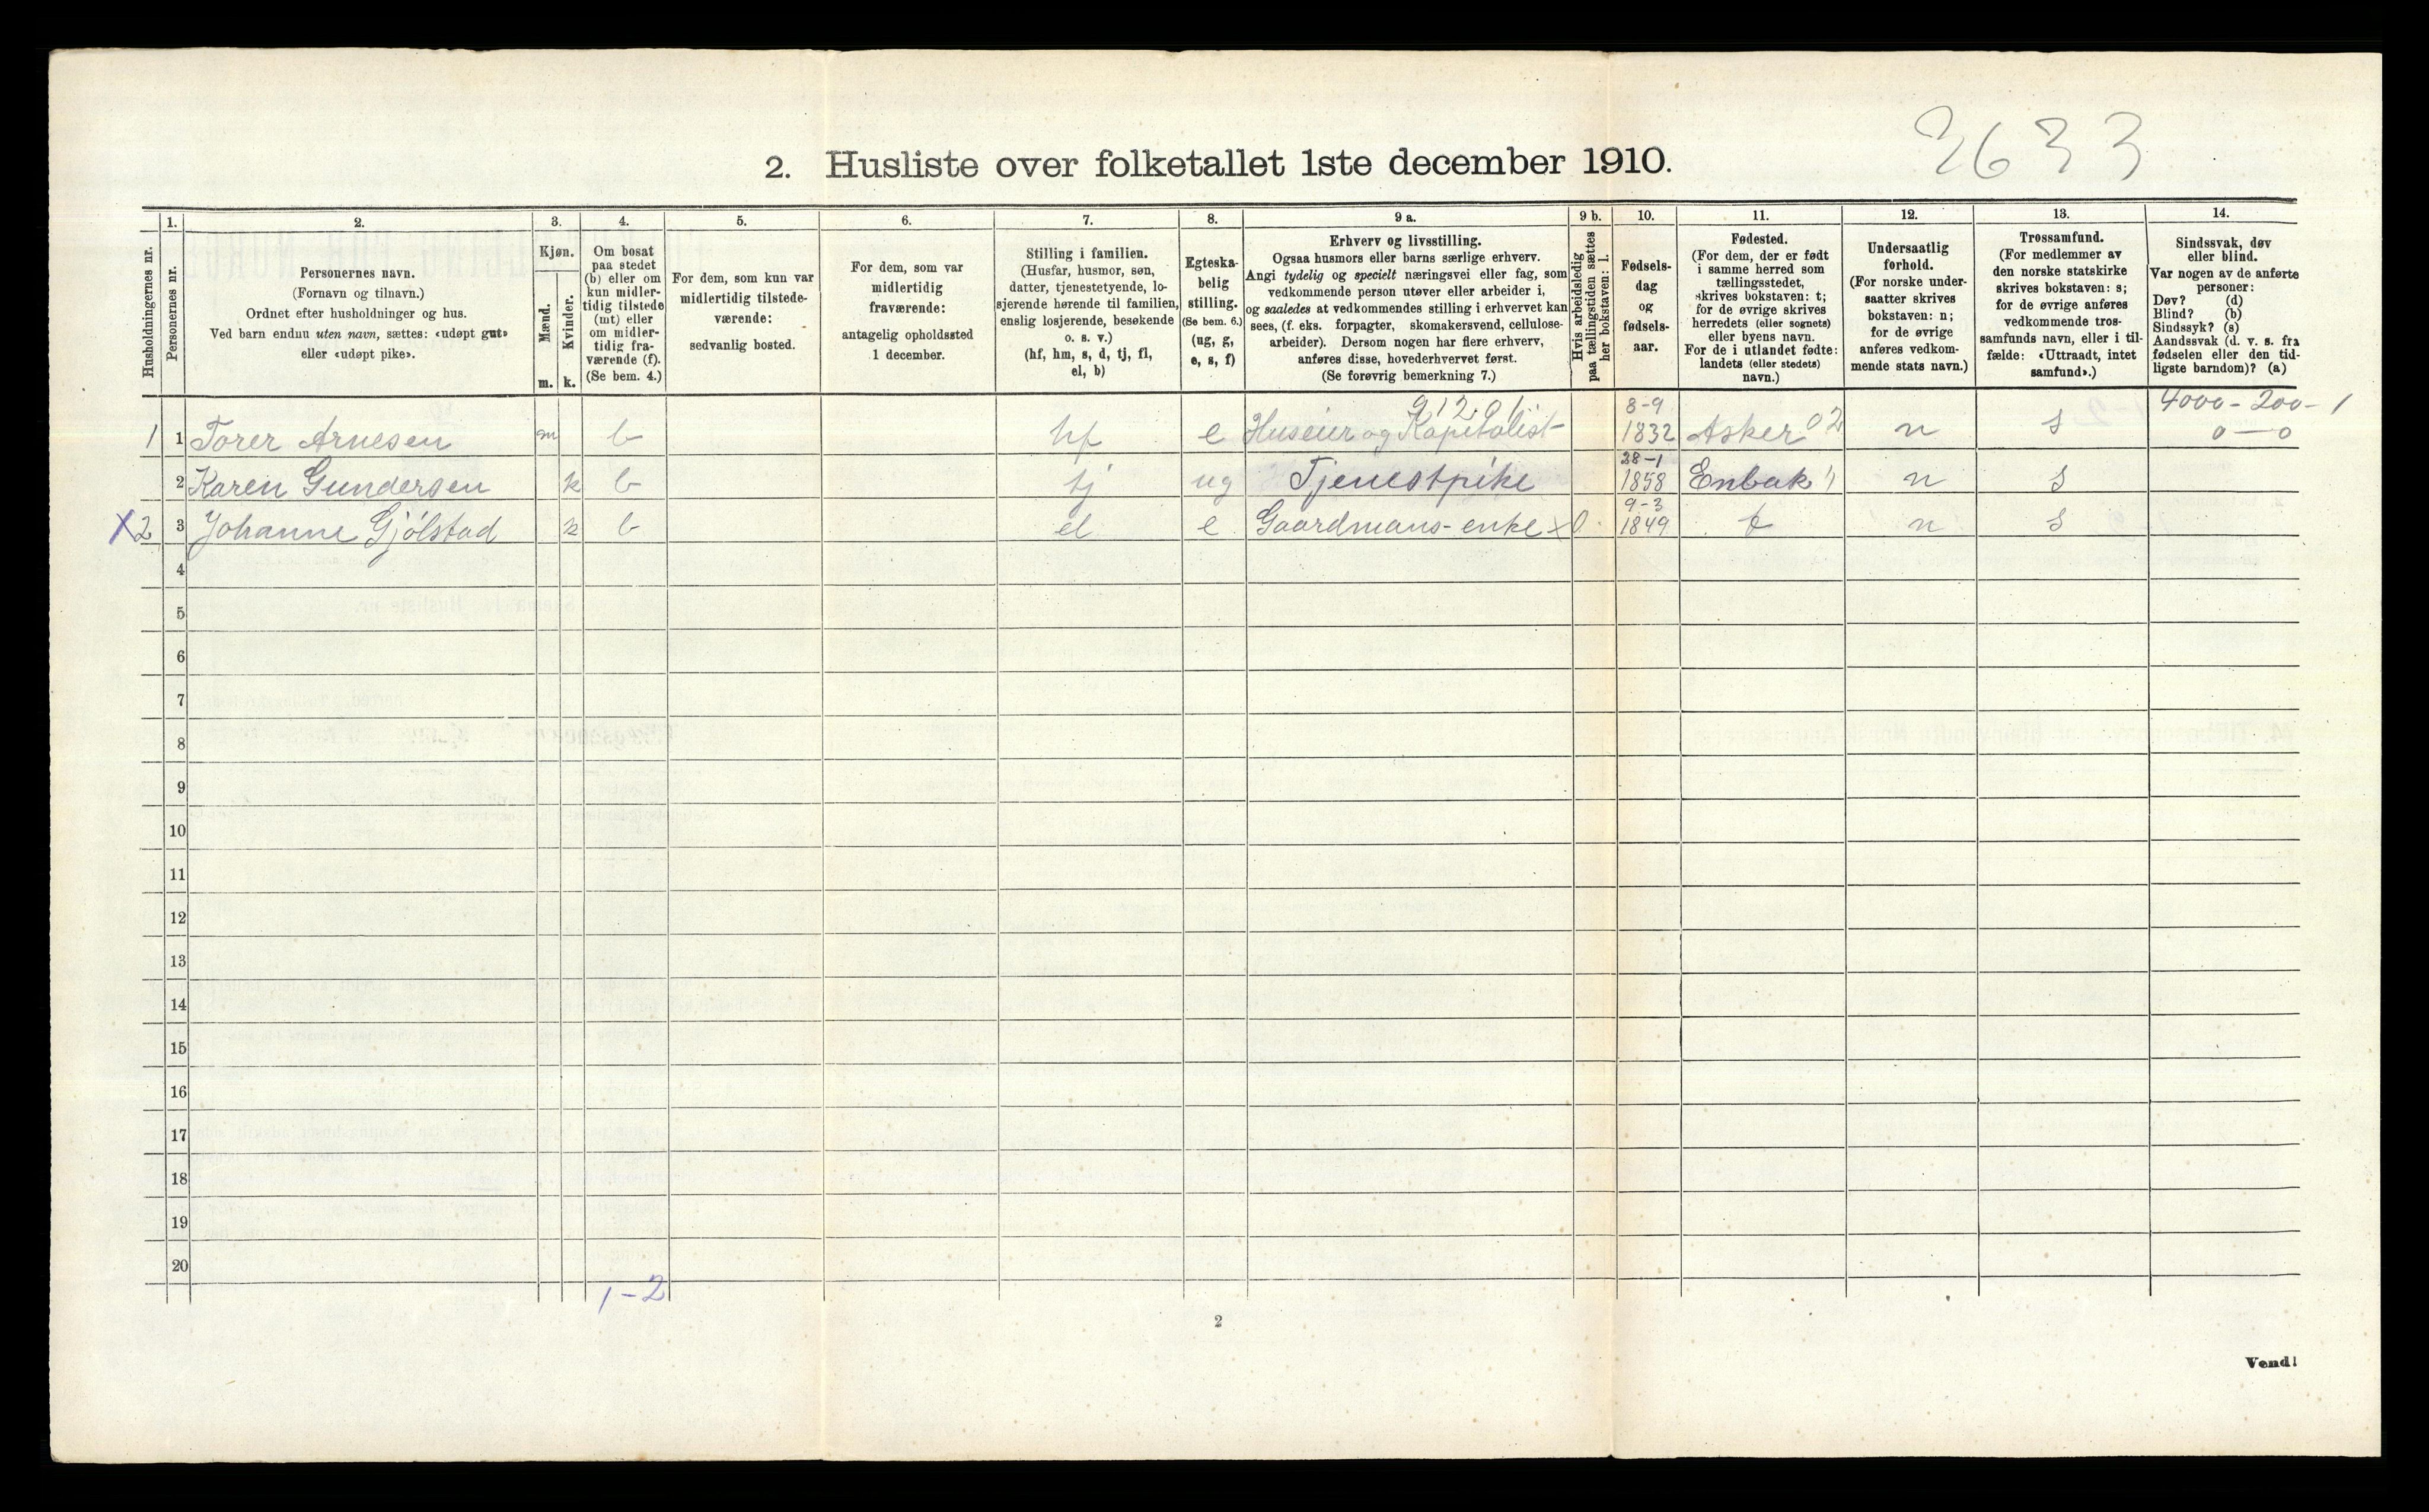 3633
2. Husliste over folketallet 1ste december 1910.
1. 2. 3. 4. 5. 6. 7. 8. 9 a. 9 b. 10. 11. 12. 13. 14.
Husholdningernes nr.
Personernes nr.
Personernes navn.
(Fornavn og tilnavn.)
Ordnet efter husholdninger og hus.
Ved barn endnu uten navn, sættes: «udøpt gut»
eller «udøpt pike».
Kjøn.
Mænd.
m.
Kvinder.
k.
Om bosat
paa stedet
(b) eller om
kun midler-
tidig tilstede
(mt) eller
om midler-
tidig fra-
værende (f).
(Se bem. 4.)
For dem, som kun var
midlertidig tilstede-
værende:
sedvanlig bosted.
For dem, som var
midlertidig
fraværende:
antagelig opholdssted
1 december.
Stilling i familien.
(Husfar, husmor, søn,
datter, tjenestetyende, lo-
sjerende hørende til familien,
enslig losjerende, besøkende
o. s. v.)
(hf, hm, s, d, tj, fl,
el, b)
Egteska-
belig
stilling.
(Se bem. 6.)
(ug, g,
e, s, f)
Erhverv og livsstilling.
Ogsaa husmors eller barns særlige erhverv.
Angi tydelig og specielt næringsvei eller fag, som
vedkommende person utøver eller arbeider i,
og saaledes at vedkommendes stilling i erhvervet kan
sees, (f. eks. forpagter, skomakersvend, cellulose-
arbeider). Dersom nogen har flere erhverv,
anføres disse, hovederhvervet først.
(Se forøvrig bemerkning 7.)
Hvis arbeidsledig
paa tællingstiden sættes
her bokstaven: l.
Fødsels-
dag
og
fødsels-
aar.
Fødested.
(For dem, der er født
i samme herred som
tællingsstedet,
skrives bokstaven: t;
for de øvrige skrives
herredets (eller sognets)
eller byens navn.
For de i utlandet fødte:
landets (eller stedets)
navn.)
Undersaatlig
forhold.
(For norske under-
saatter skrives
bokstaven: n;
for de øvrige
anføres vedkom-
mende stats navn.)
Trossamfund.
(For medlemmer av
den norske statskirke
skrives bokstaven: s;
for de øvrige anføres
vedkommende tros-
samfunds navn, eller i til-
fælde: «Uttraadt, intet
samfund».)
Sindssvak, døv
eller blind.
Var nogen av de anførte
personer:
Døv? (d)
Blind? (b)
Sindssyk? (s)
Aandssvak (d. v. s. fra
fødselen eller den tid-
ligste barndom)? (a)
91201 8-9 4000 - 200 - 1
1 1 Torer Arnesen m b hf e Huseier og Kapitalist 1832 Asker 02 n s 0 — 0
28-1
2 Karen Gundersen k b tj ug Tjenestpike 1858 Enbak n s
9-3
X2 3 Johanne Gjölstad k b el e Gaardmans-enke x 0 1849 t n s
4
5
6
7
8
9
10
11
12
13
14
15
16
17
18
19
20
1-2
2
Vend!